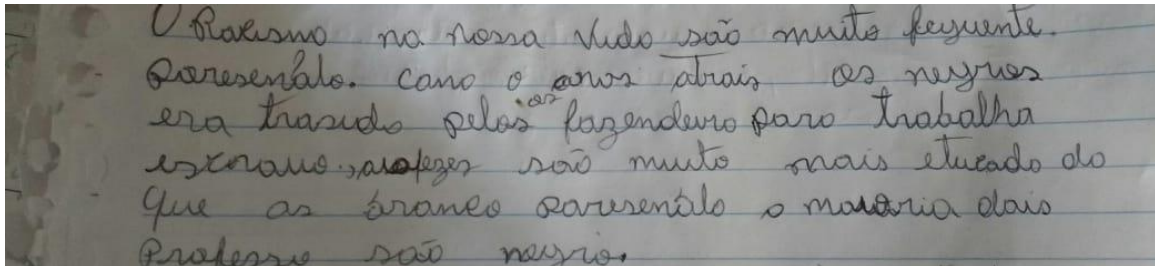 O Racismo na nossa vido são muito feguente.
Paresenplo. Camo o anos atrais os negros
era trasido pelas os fazendeiro para trabalha
escravo, asfezes são muito mais etucado do
que as branco paresenplo o maioria dais
Professo são negro.